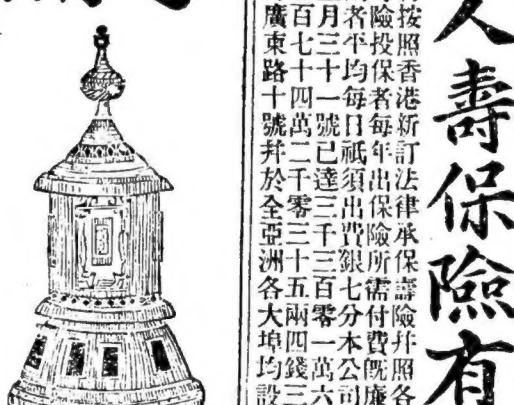 人壽保險有
按照香港新訂法律承保壽險幷照各
險投保者每年出保險所需付費既廉
者平均每日祇須出費銀七分本公司
月三十一號已達三千三百零一萬六
百七十四萬二千零三十五兩四錢三
廣東路十號幷於全亞洲各大埠均設